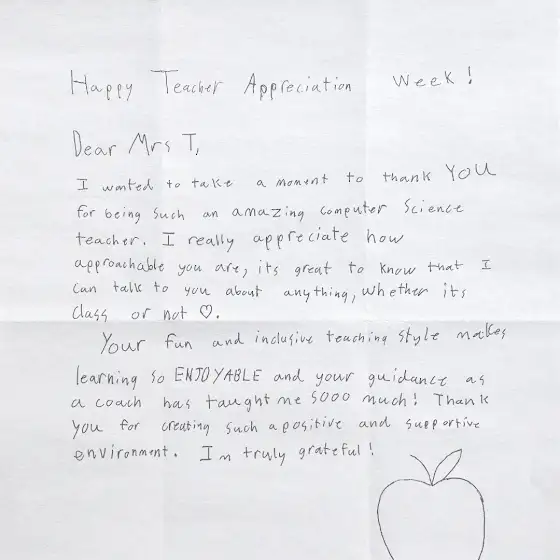 Happy Teacher Appreciation Week!
Dear Mrs T,
I wanted to take a moment to thank YOU
for being such an amazing computer science
teacher. I really appreciate how
approachable you are, its great to know that I
can talk to you about anything, whether its
class or not ♡.
Your fun and inclusive teaching style makes
learning so ENJOYABLE and your guidance as
a coach has taught me sooo much! Thank
you for creating such a positive and supportive
environment. Im truly grateful!